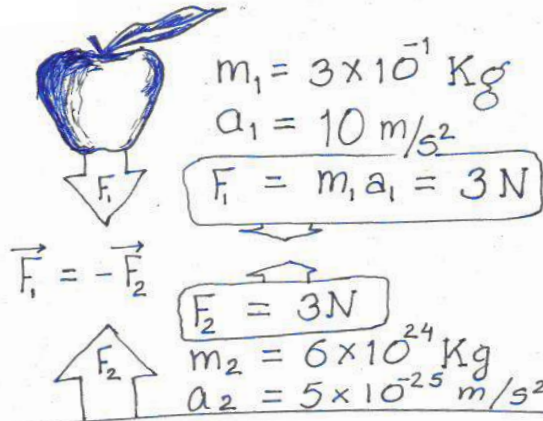 m₁ = 3 × 10⁻¹ Kg
a₁ = 10 m/s²
F₁
F₁ = m₁ a₁ = 3 N
F₁ = −F₂
F₂ = 3N
F₂
m₂ = 6 × 10²⁴ Kg
a₂ = 5 × 10⁻²⁵ m/s²